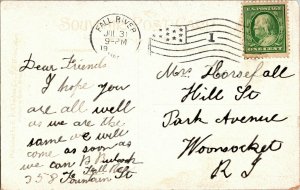 SOUVENIR POST CARD
FALL RIVER
JUL 31
9-PM
19
1
U.S. POSTAGE
ONE CENT
Dear Friends
I hope you
are all well
as we are the
same we will
come as soon as
we can B
Fall River
358 Fountain St
Mrs Horsefall
Hill St
Park Avenue
Woonsocket
R I